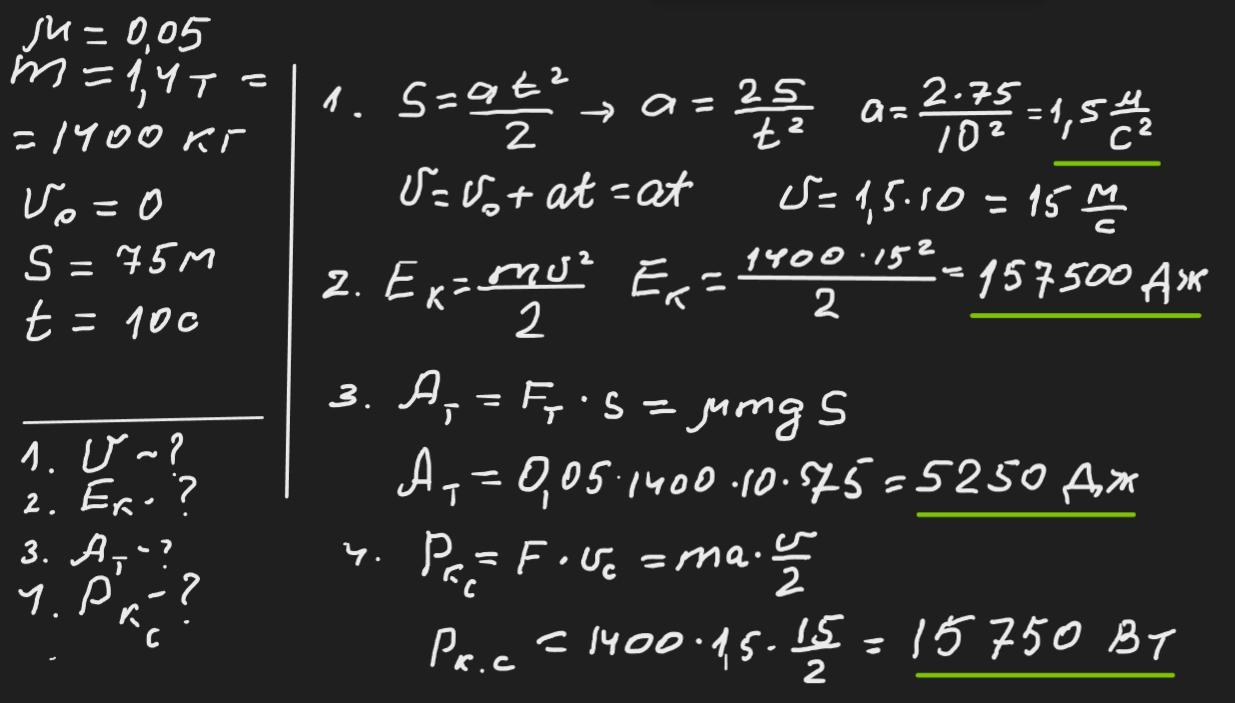 μ = 0,05
m = 1,4 т =
= 1400 кг
υ₀ = 0
S = 75 м
t = 10 с
1. υ - ?
2. Eк - ?
3. Aт - ?
4. Pк.с - ?
1. S = at²/2 → a = 2S/t² a = 2·75/10² = 1,5 м/с²
υ = υ₀ + at = at υ = 1,5·10 = 15 м/с
2. Eк = mυ²/2 Eк = 1400·15²/2 = 157500 Дж
3. Aт = Fт · s = μmg S
Aт = 0,05·1400·10·75 = 5250 Дж
4. Pкс = F · υс = ma · υ/2
Pк.с = 1400·1,5·15/2 = 15 750 Вт